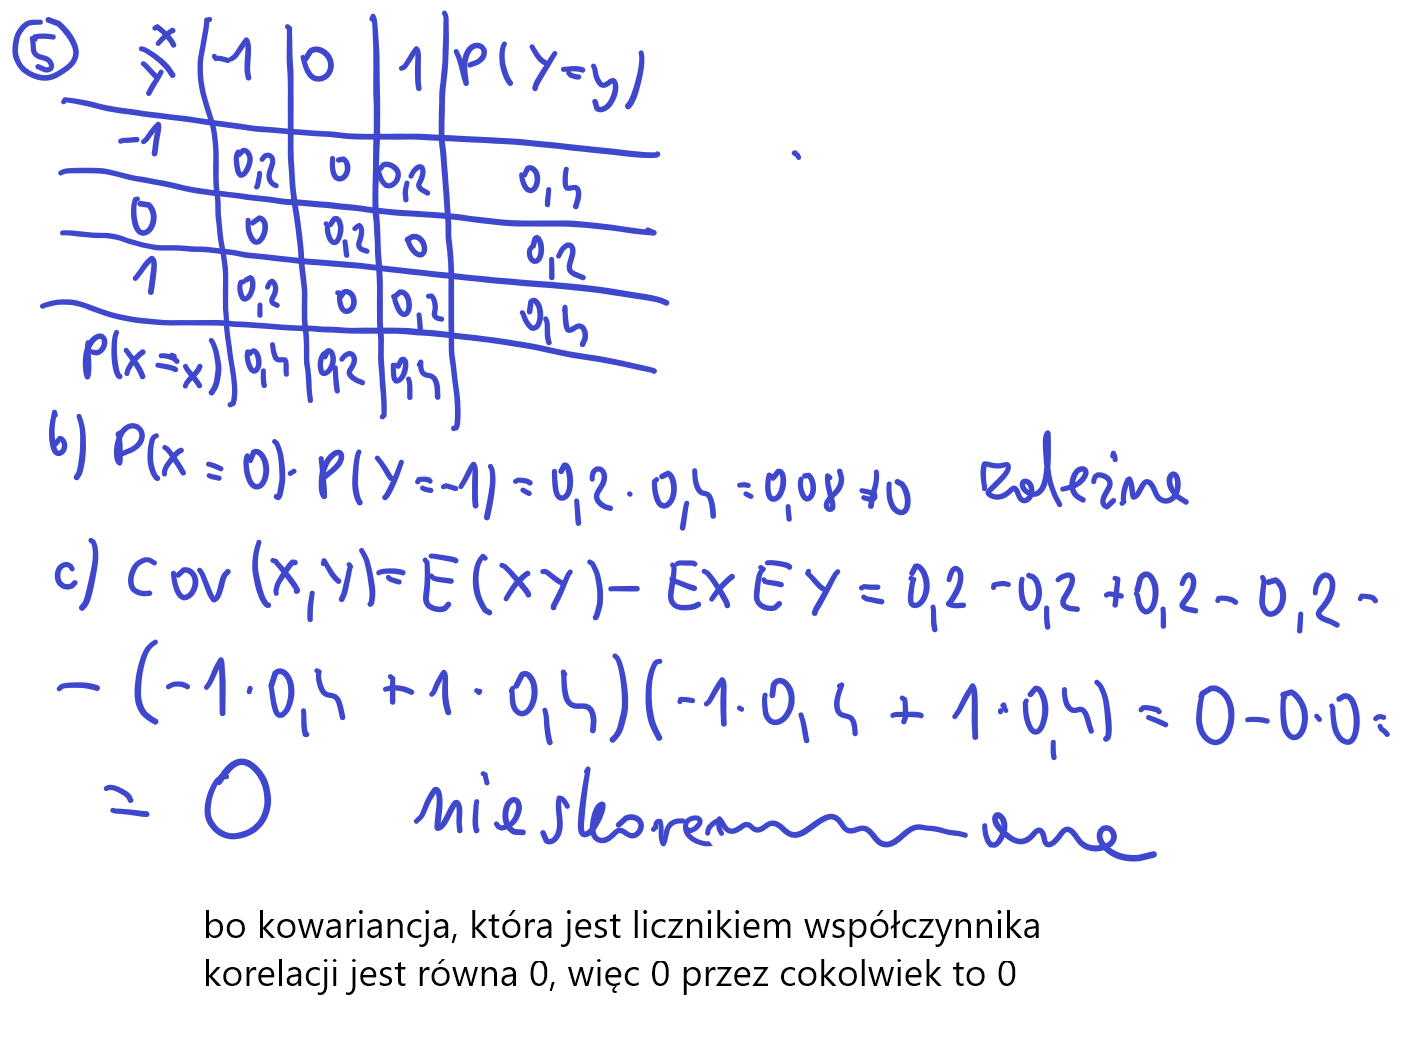 5 X Y -1 0 1 P(Y=y)
-1 0,2 0 0,2 0,4
0 0 0,2 0 0,2
1 0,2 0 0,2 0,4
P(X=x) 0,4 0,2 0,4
b) P(X=0)·P(Y=-1)=0,2·0,4=0,08≠0 zależne
c) cov(X,Y)=E(XY)-EXEY=0,2-0,2+0,2-0,2-
-(-1·0,4+1·0,4)(-1·0,4+1·0,4)=0-0·0=
=0
bo kowariancja, która jest licznikiem współczynnika
korelacji jest równa 0, więc 0 przez cokolwiek to 0